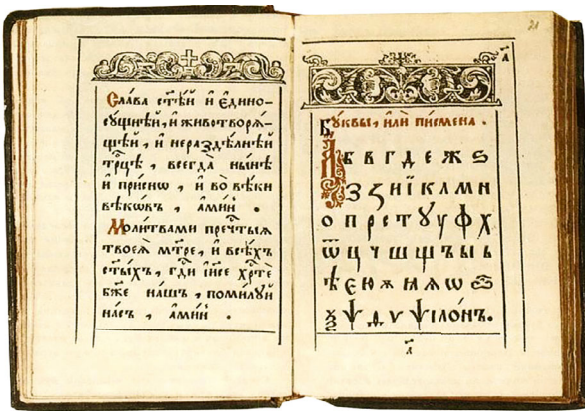 Сла́ва ст҃ѣ́й и҆ є҆дино-
сꙋ́щнѣй, и҆ животворѧ́-
щей, и҆ нераздѣ́лнѣй
трⷪ҇цѣ, всегда̀ ны́нѣ
и҆ при́снѡ, и҆ во вѣ́ки
вѣкѡ́въ, а҆ми́нь.
Моли́твами пречⷭ҇тыѧ
твоеѧ̀ мт҃ре, и҆ всѣ́хъ
ст҃ы́хъ, гдⷭ҇и і҆и҃се хрⷭ҇те
бж҃е на́шъ, поми́лꙋй
на́съ, а҆ми́нь.
21
а҃
Бꙋ́квы, и҆лѝ пи́смена.
А Б В Г Д Е Ж Ѕ
З Ꙁ И Ї К Л М Н
О П Р С Т Ꙋ У Ф Х
Ѿ Ц Ч Ш Щ Ъ Ы Ь
Ѣ Є Ю Ѫ Ѧ Ꙗ Ѡ Ѽ
Ѯ Ѱ Д Ѵ Ѱїло́нъ.
а҃